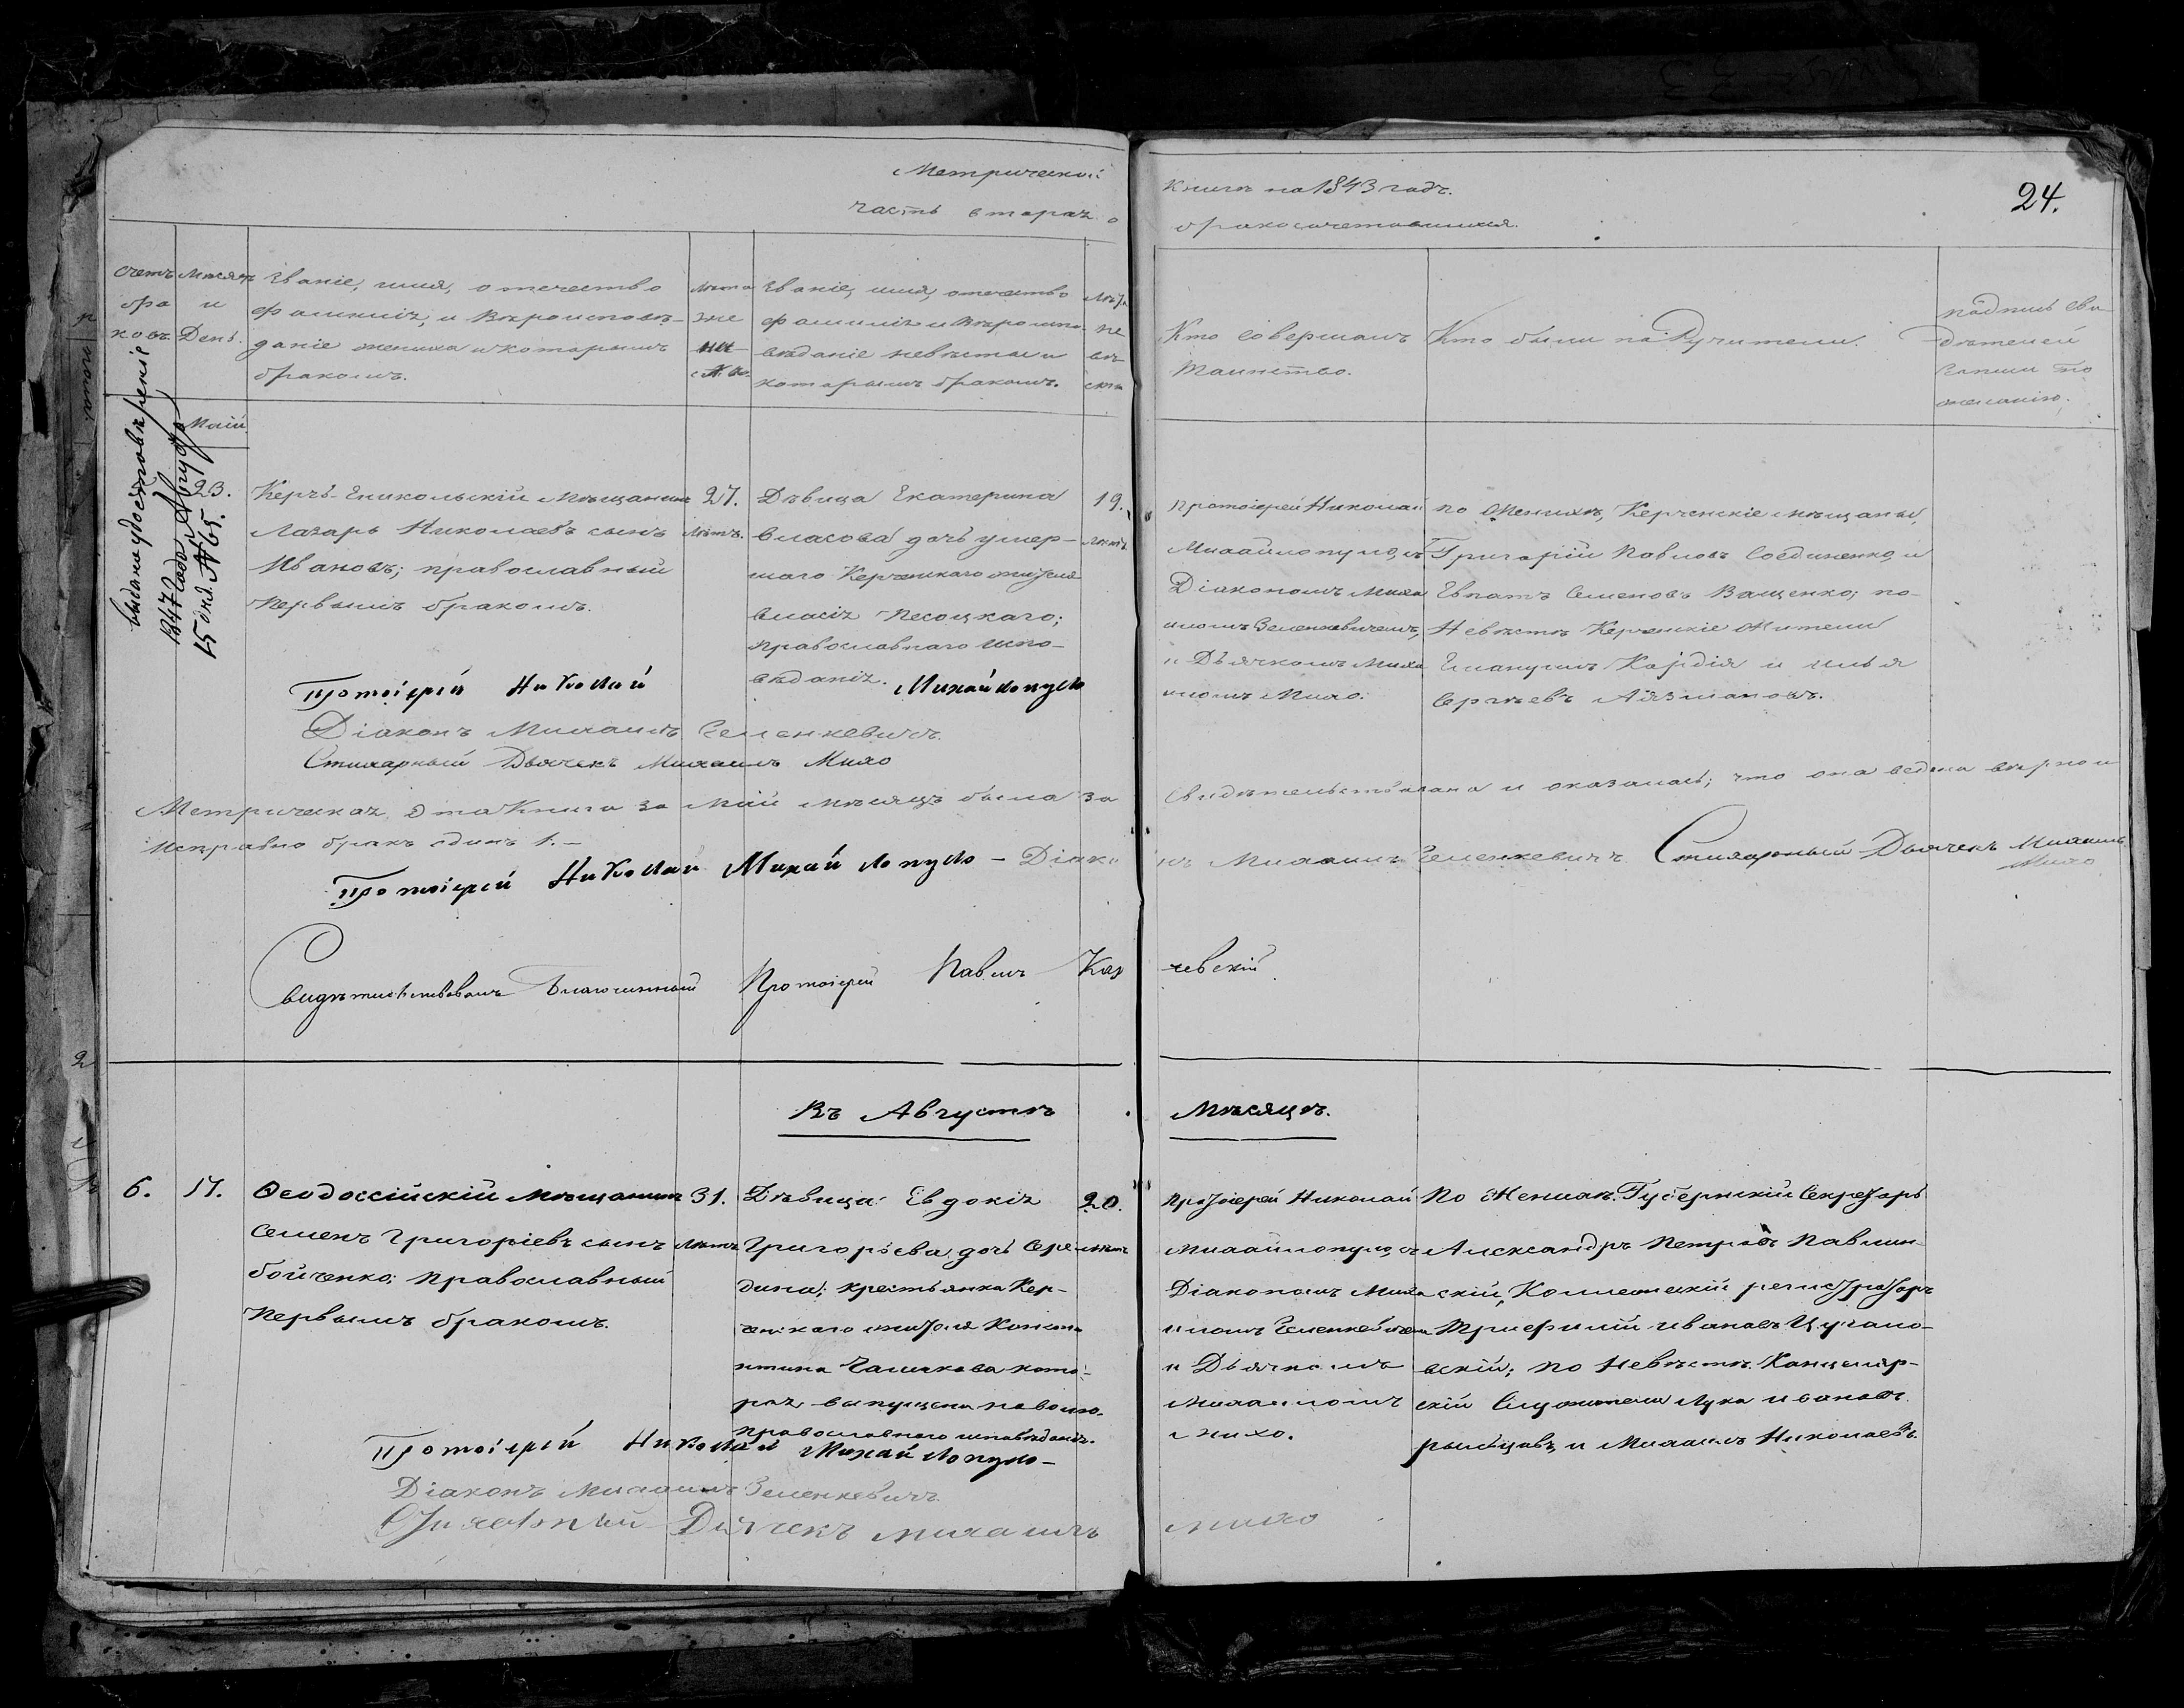 Метрической
часть вторая о
книги на 1843 годъ.
бракосочетавшихся.
24.
счетъ
бра
ковъ.
Месяцъ
и
День.
Званіе, имя, отечество
фамилія, и вѣроисповѣ-
даніе жениха и которымъ
бракомъ.
Лѣта
же
ни
ха
Званіе, имя, отечество
фамилія и вѣроиспо-
вѣданіе невѣсты и
которымъ бракомъ.
Лѣта
не
вѣ
сты
Кто совершалъ
таинство.
Кто были поручители.
подпись сви-
дѣтелей
записи по
желанію.
выдано удостовѣреніе
1847 года
15 онд. № 65.
Маій.
23.
Керчь-Еникольскій мѣщанинъ
Лазарь Николаевъ сынъ
Ивановъ; православный
первымъ бракомъ.
27.
лѣтъ.
Дѣвица Екатерина
Власова дочь умер-
шаго Керченскаго жителя
Власія Песоцкаго;
православнаго испо-
вѣданія.
19.
лѣтъ
Протоіерей Николай
Михайлопуло, съ
Діакономъ Миха
иломъ Зеленкевичемъ,
и Дьячкомъ Миха
иломъ Михо.
по Женихѣ, Керченскіе мѣщаны,
Григорій Павловъ Соединенко, и
Евпатъ Семеновъ Ващенко; по
Невѣстѣ Керченскіе Жители
Емануилъ Кордія и Илья
Сергѣевъ Айзмановъ.
Протоіерей Николай Михайлопуло
Діаконъ Михаилъ Зеленкевичъ.
Стихарный Дьячекъ Михаилъ Михо
Метрическая эта Книга за Май мѣсяцъ была за
свидѣтельствована и оказалась; что она ведена вѣрно и
исправно бракъ одинъ 1. –
Протоіерей Николай Михайлопуло – Діако
нъ Михаилъ Зеленкевичъ Стихарный Дьячекъ Михаилъ
Михо
Свидѣтельствовалъ Благочинный Протоіерей Павелъ Кар
чевскій
Въ Августѣ
Мѣсяцѣ.
6.
17.
Ѳеодосійскій мѣщанинъ
Семенъ Григоріевъ сынъ
бойченко; православный
первымъ бракомъ.
31.
лѣтъ
Дѣвица Евдокія
Григорьева дочь Сере-
дина; крестьянка Кер-
ченскаго жителя Конста
нтина Чашакова кото-
рая выпущена наволю.
православнаго исповѣданія.
20.
лѣтъ
Протоіерей Николай
Михайлопуло, съ
Діакономъ Миха
иломъ Зеленкевичемъ
и Дьячкомъ
Михаиломъ
Михо.
По Женихѣ. Губернскій Секретарь
Александръ Петровъ Павлин-
скій, Коллежскій регистраторъ
Трифилій Ивановъ Цугано-
вскій; по Невѣстѣ. Канцеляр-
скій Служитель Лука Ивановъ
и Михаилъ Николаевъ.
Протоіерей Николай Михайлопуло –
Діаконъ Михаилъ Зеленкевичъ.
Стихарный Дьячекъ Михаилъ
Михо